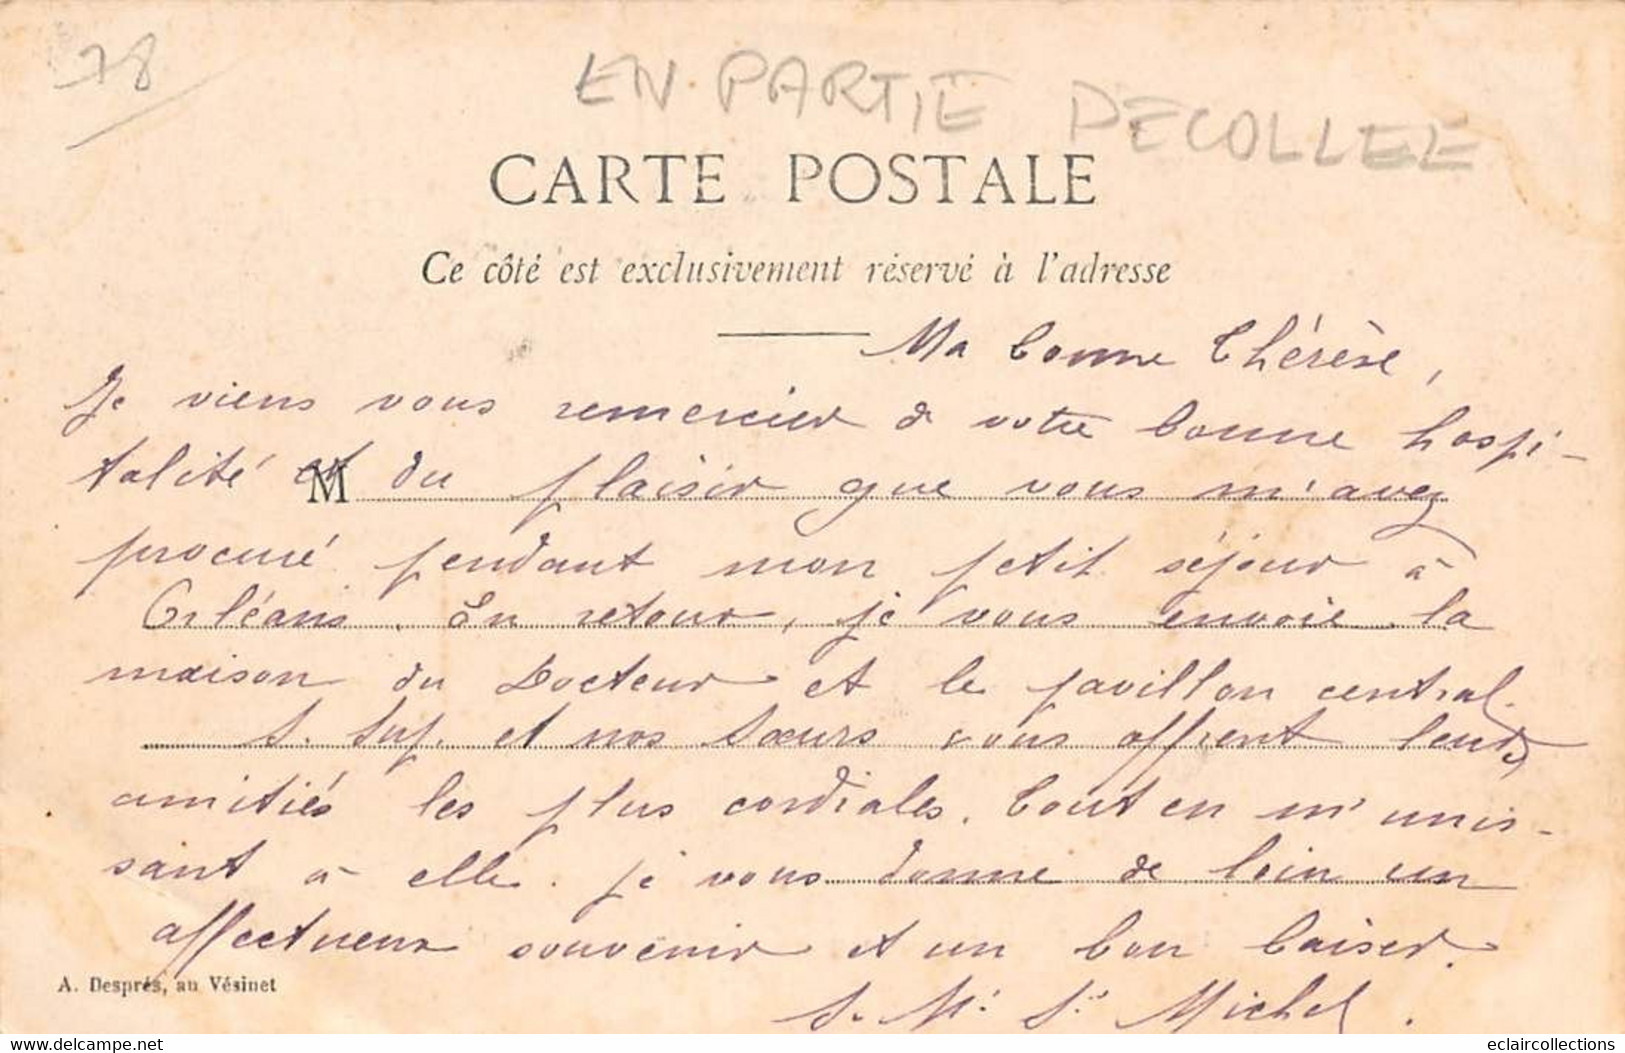 78
EN PARTIE DECOLLEE
CARTE POSTALE
Ce côté est exclusivement réservé à l'adresse
Ma bonne Thérèse,
Je viens vous remercier de votre bonne hospi-
talité et du plaisir que vous m'avez
M
procuré pendant mon petit séjour à
Orléans. En retour, je vous envoie la
maison du Docteur et le pavillon central.
S. Sup. et nos Sœurs vous offrent leurs
amitiés les plus cordiales. Tout en m'unis-
sant à elle. je vous donne de loin un
affectueux souvenir et un bon baiser.
A. Després, au Vésinet
S. M. St Michel.
delcampe.net
eclaircollections